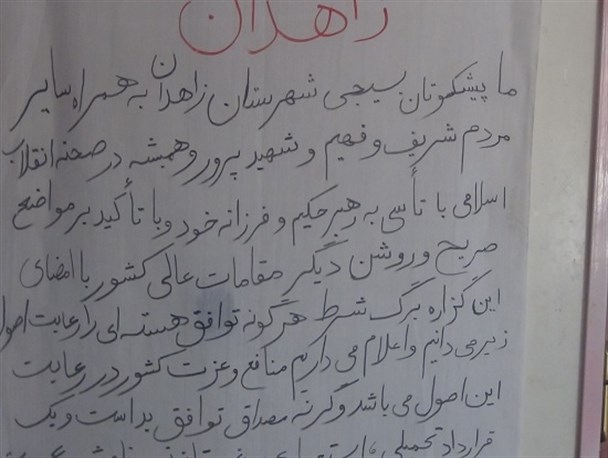 زاهدان
ما پیشکوتان بسیجی شهرستان زاهدان به همراه سایر
مردم شریف و فهیم و شهید پرور و همیشه در صحنه انقلاب
اسلامی با تأسی به رهبر حکیم و فرزانه خود و با تأکید بر مواضع
صریح و روشن دیگر مقامات عالی کشور با امضای
این گزاره برگ شرط هرگونه توافق هسته ای را رعایت اصول
زیر می دانیم و اعلام می داریم منافع و عزت کشور در رعایت
این اصول می باشد وگرنه مصداق توافق بد است و یک
قرارداد تحمیلی